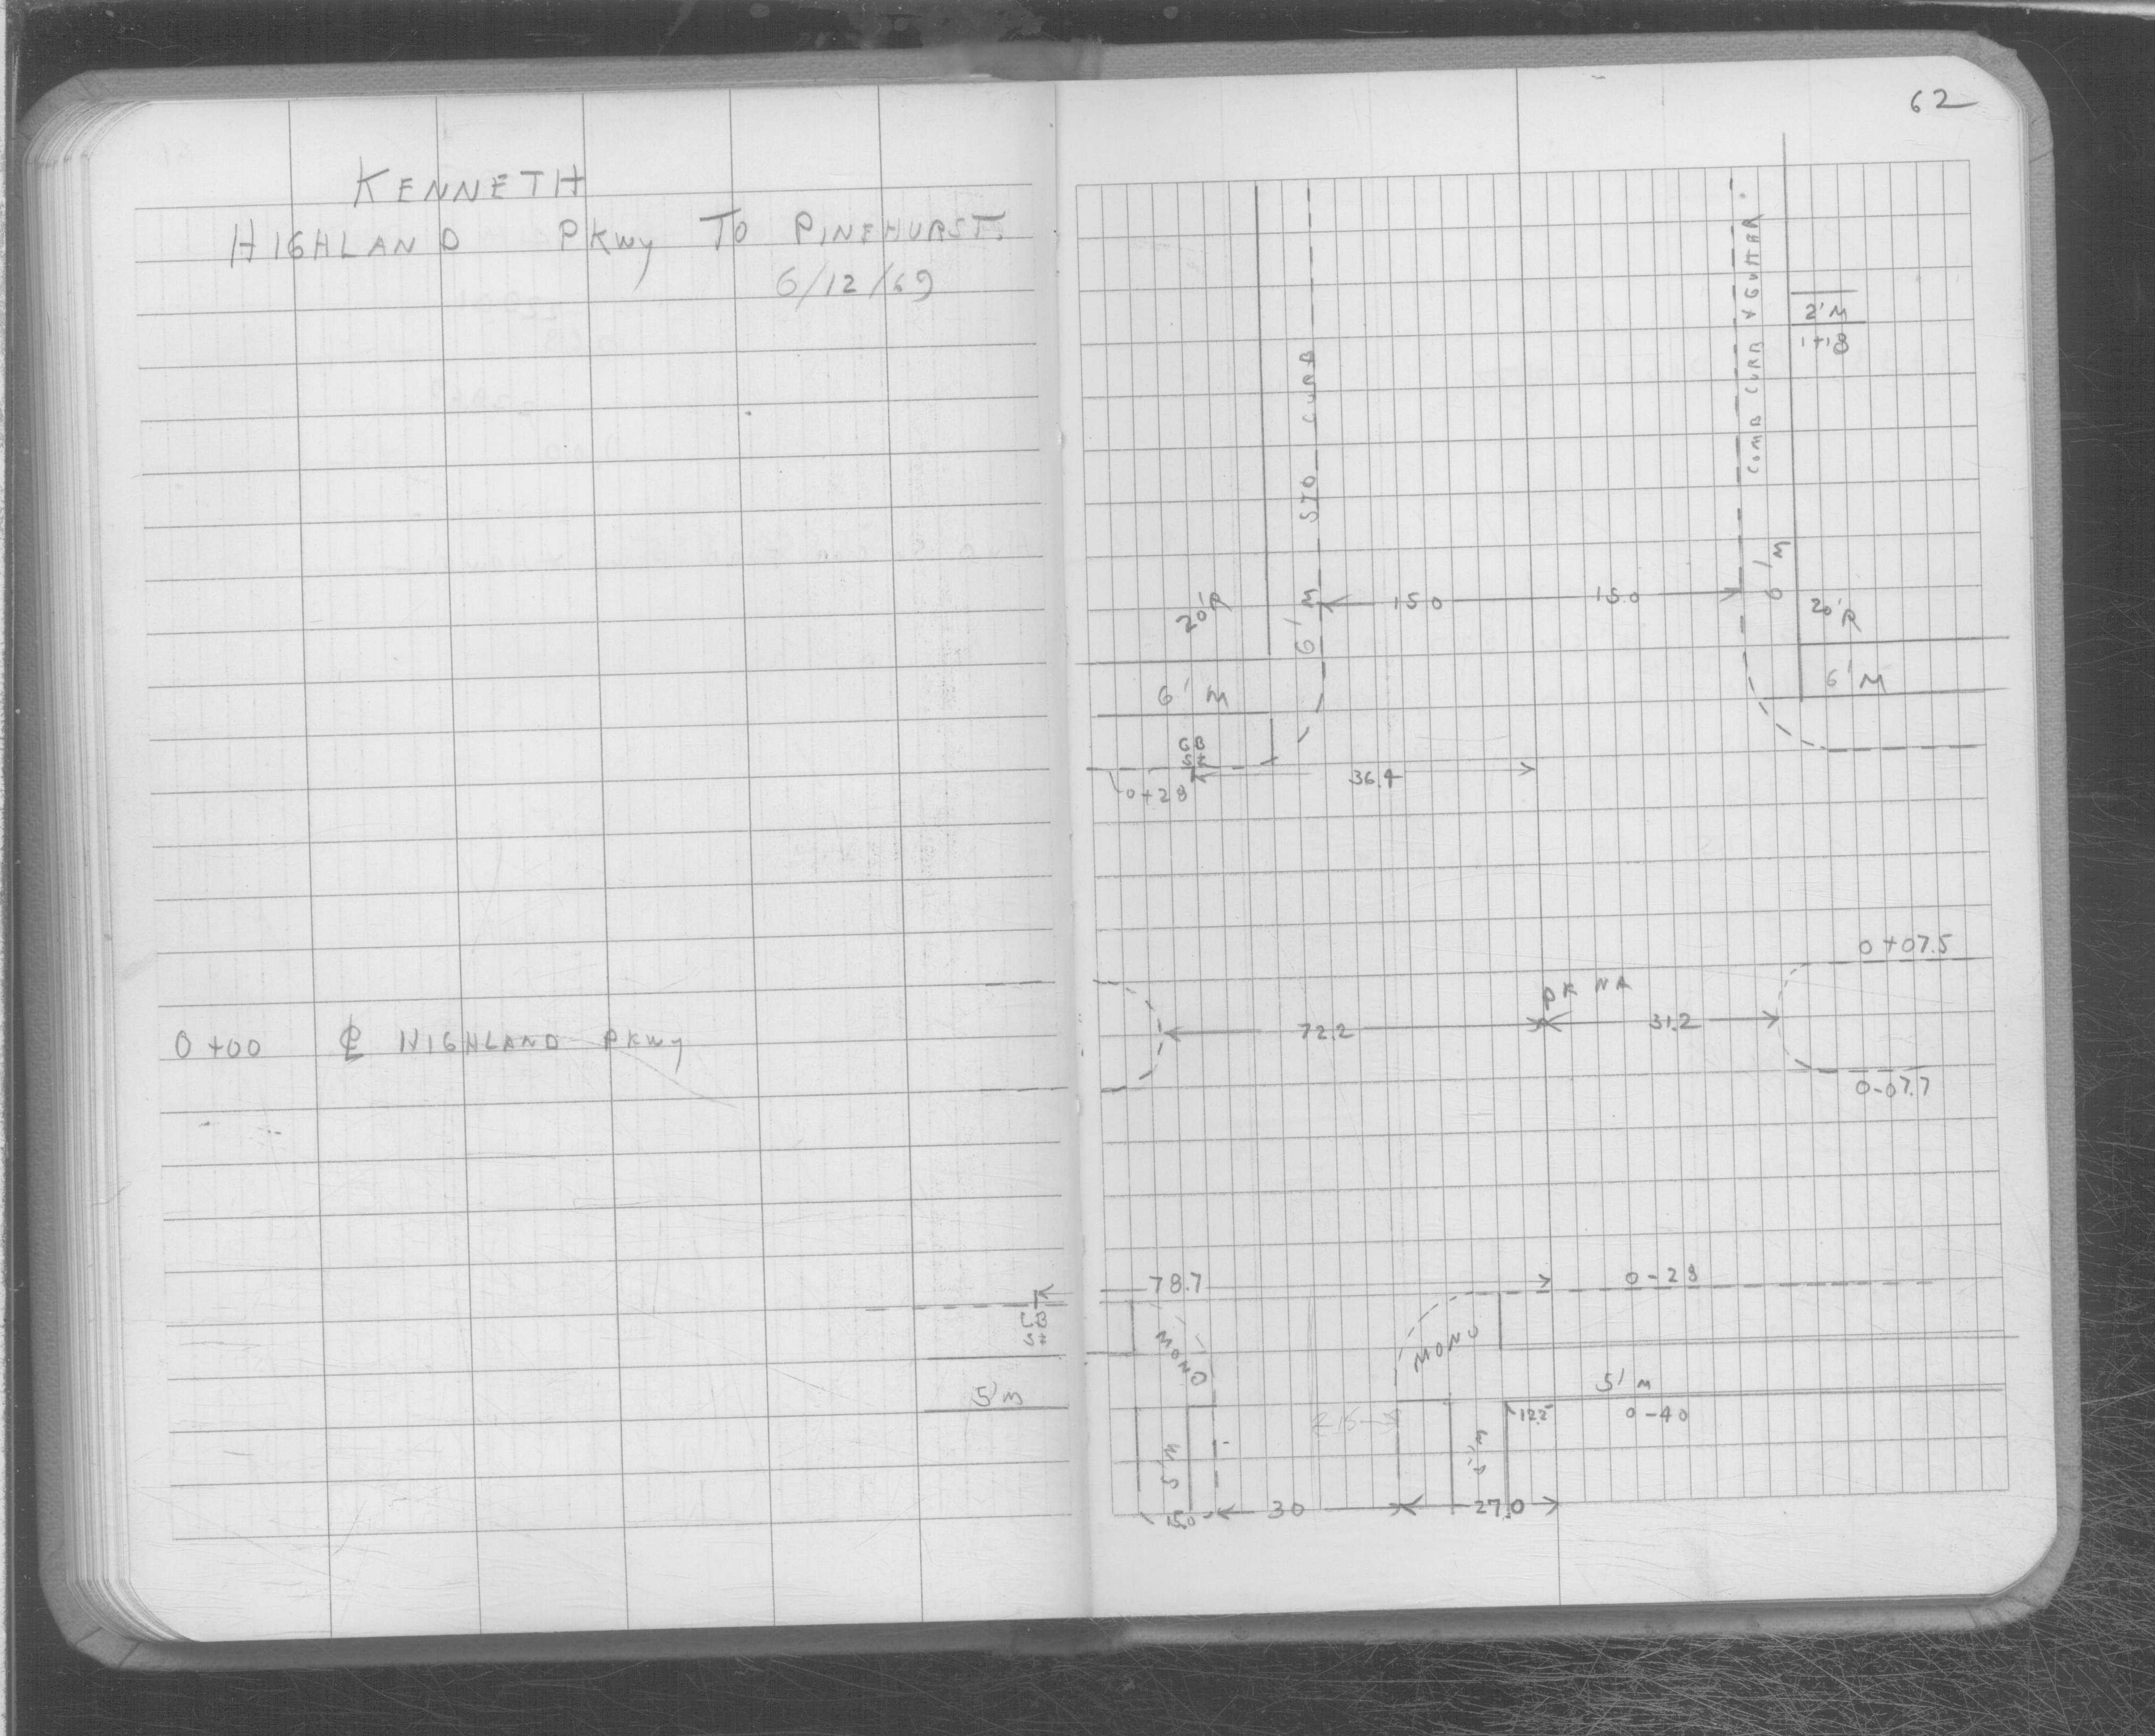 62
KENNETH
HIGHLAND PKWY TO PINEHURST.
6/12/69
COMB CURB & GUTTAR
2'M
1+18
STD CURB
6'M
6'M
20'R
150
150
20'R
6'M
6'M
CB
St
36.4
0+28
0+07.5
PK NA
0+00 ℄ HIGHLAND PKWY
72.2
31.2
0-07.7
78.7
0-28
CB
St
MONO
MONO
5'M
5'M
12.5
0-40
5'M
5'M
15.0
30
27.0